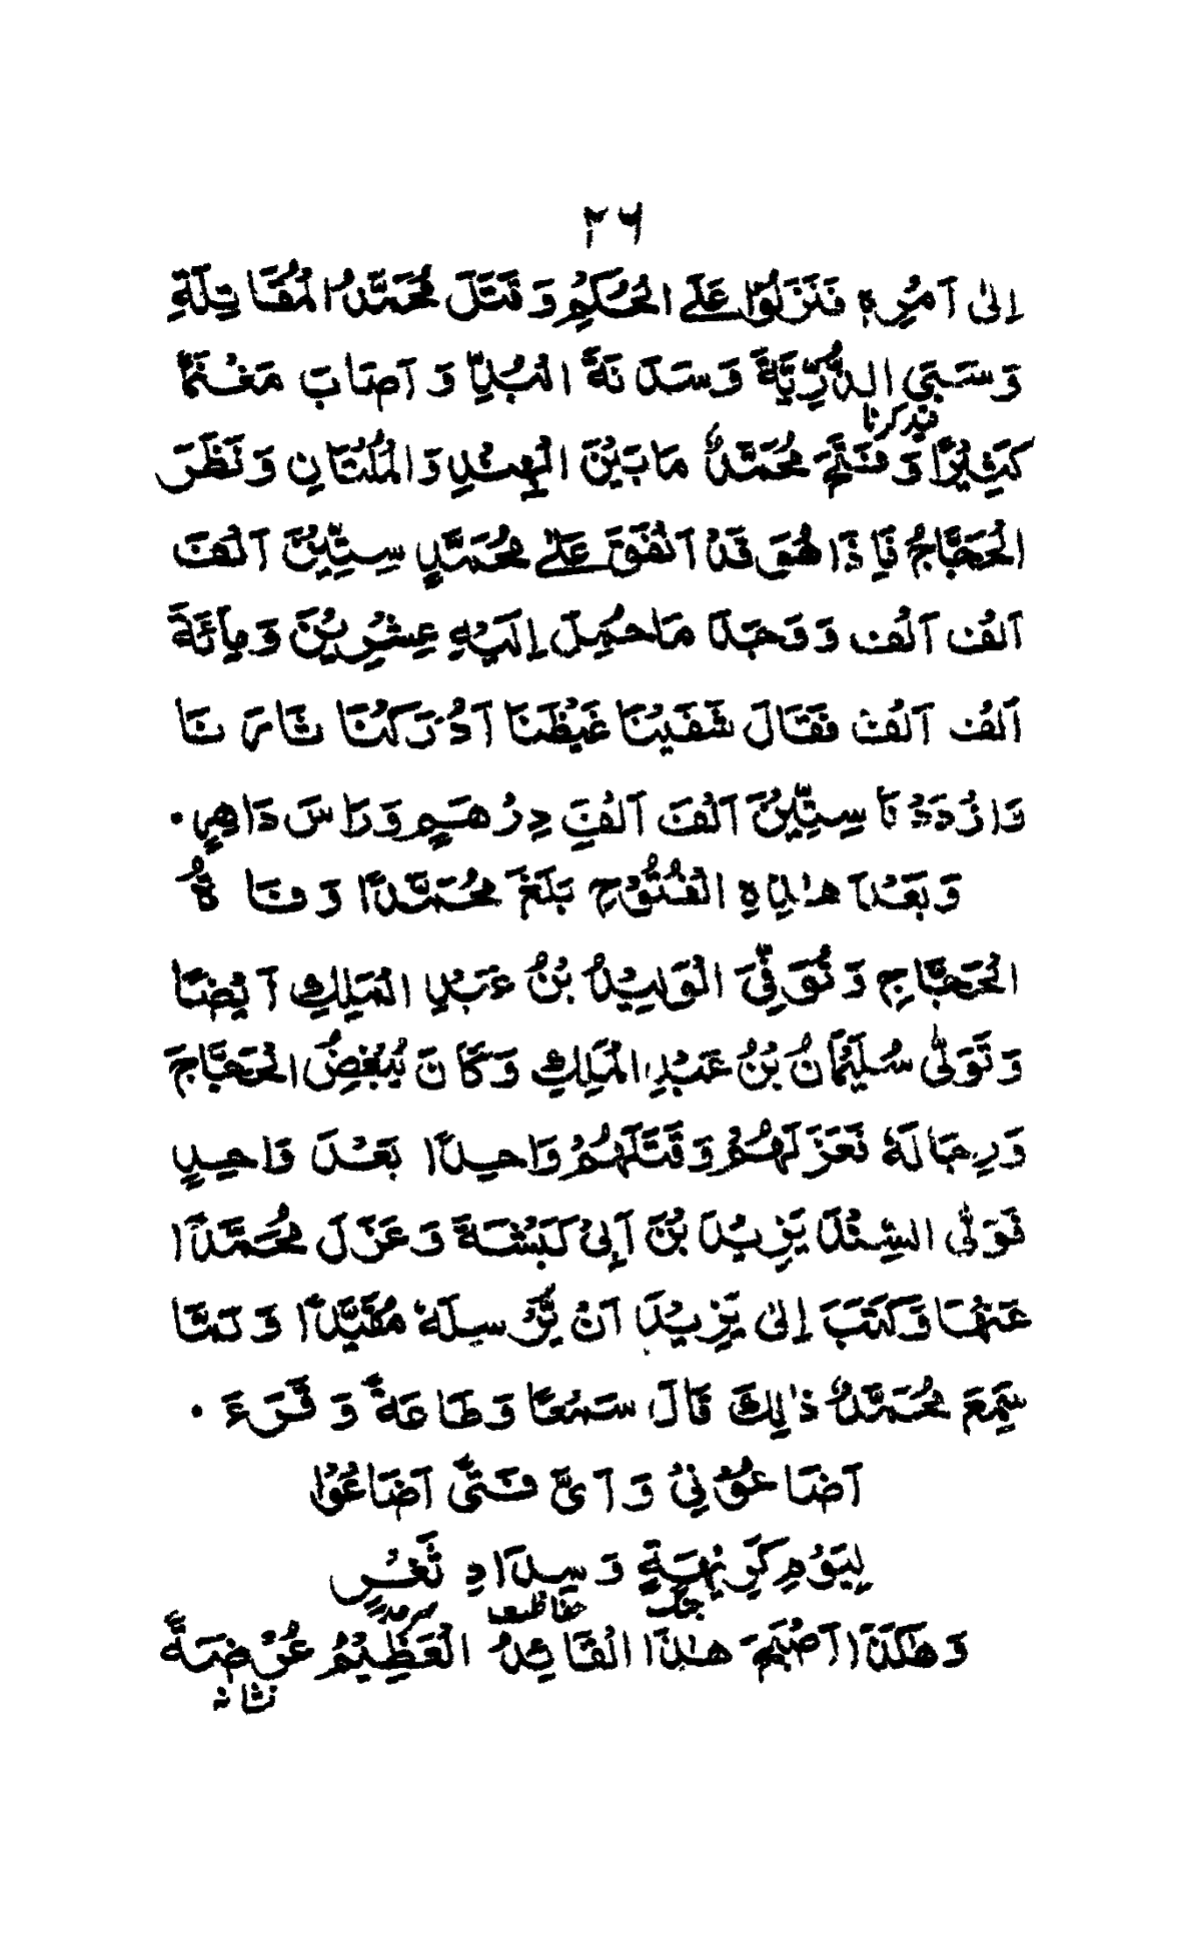 ٣٦
اِلىٰ اَمْرِهٖ فَنَزَلُوْا عَلَے الْحُكْمِ وَ قَتَلَ مُحَمَّدُ الْمُقَاتِلَةِ
وَ سَبَي الذُّرِّيَّةَ وَ سَدَ نَةَ الْبُدِّ وَ اَصَابَ مَغْنَمًا
قيد كرنا
كَثِيْرًا وَ فَتَحَ مُحَمَّدٌ مَا بَيْنَ الْهِنْدِ وَ الْمُلْتَانِ وَ نَظَرَ
الْحَجَّاجُ فَاِ ذَا هُوَ قَدْ اَنْفَقَ عَلےٰ مُحَمَّدٍ سِتِّيْنَ اَلْفَ
اَلْفٍ اَلْفٍ وَ وَجَدَ مَا حُمِلَ اِلَيْهِ عِشْرِيْنَ وَ مِأَئَةَ
اَلْفِ اَلْفٍ فَقَالَ شَفَيْنَا غَيْظَنَا اَدْرَكْنَا ثَا رَ نَا
وَ ازْدَدْ نَا سِتِّيْنَ اَلْفَ اَلْفِ دِرْ هَمٍ وَ رَاْ سَ دَاهِرٍ ۔
وَ بَعْدَ هٰذِهِ الْفُتُوْحِ بَلَغَ مُحَمَّدًا وَ فَا ةُ
الْحَجَّاجِ وَ تُوُ فِّيَ الْوَلِيْدُ بْنُ عَبْدِ الْمَلِكِ اَيْضًا
وَ تَوَلّٰى سُلَيْمَانُ بْنُ عَبْدِ الْمَلِكِ وَ كَا نَ يُبْغِضُ الْحَجَّاجَ
وَ رِجَا لَهٗ فَعَزَ لَهُمْ وَ قَتَلَهُمْ وَاحِدًا بَعْدَ وَاحِدٍ
فَوَلّٰى السِّنْدَ يَزِيْدَ بْنَ اَبِيْ كَبْشَةَ وَ عَزَلَ مُحَمَّدًا
عَنْهَا وَ كَتَبَ اِلىٰ يَزِيْدَ اَنْ يُّرْ سِلَهٗ مُقَيَّدًا وَ لَمَّا
سَمِعَ مُحَمَّدٌ ذٰلِكَ قَالَ سَمْعًا وَ طَا عَةً وَ قَرَءَ ۔
اَضَا عُوْ نِيْ وَ اَ يَّ فَتًى اَضَا عُوْا
لِيَوْمِ كَرِ يْهَةٍ وَ سِدَا دِ ثَغْرٍ
جنگ حفاظت سرحد
وَ هٰكَذَا اَصْبَحَ هٰذَا الْقَا ئِدُ الْعَظِيْمُ عُرْ ضَةً
نشانہ